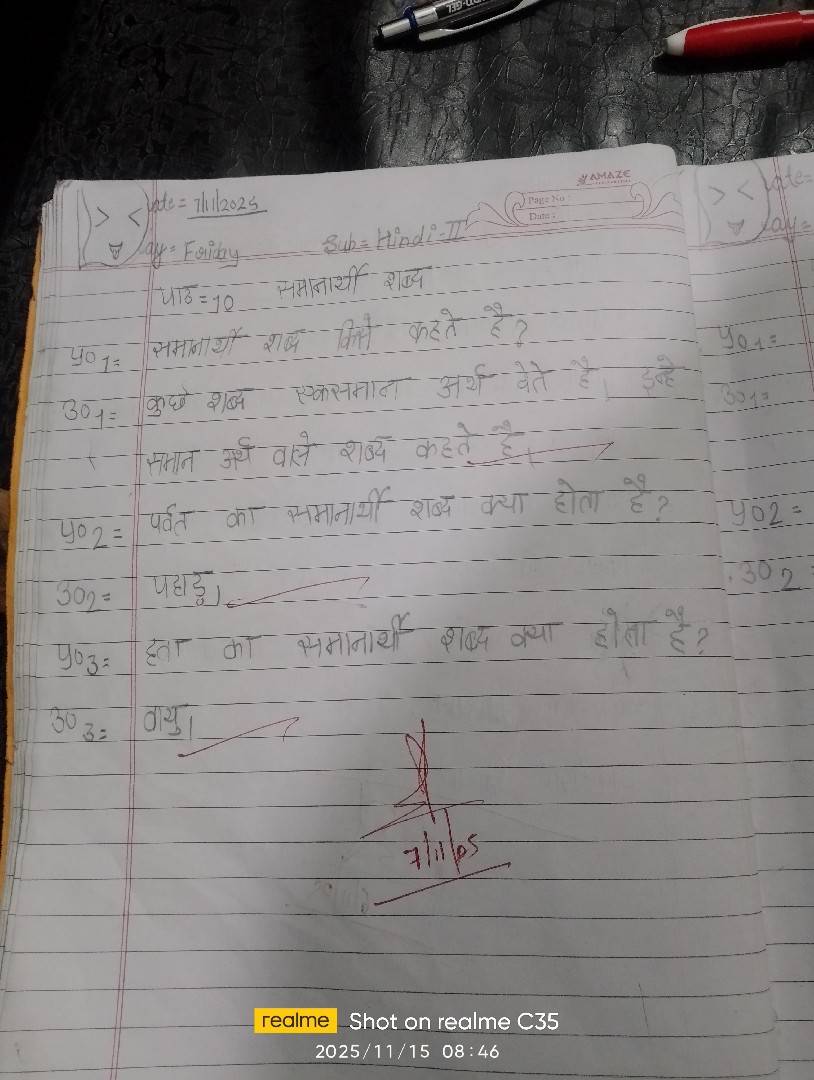 Date = 7/11/2025
AMAZE
Page No :
Date :
Day = Friday Sub = Hindi-II
पाठ = 10 समानार्थी शब्द
प्र01= समानार्थी शब्द किसे कहते है?
उ01= कुछे शब्द एकसमान अर्थ देते है, इन्हे
समान अर्थ वाले शब्द कहते है,
प्र02= पर्वत का समानार्थी शब्द क्या होता है?
उ02= पहाड़।
प्र03= हवा का समानार्थी शब्द क्या होता है?
उ03= वायु।
7/11/05
Date=
Day=
प्र01=
उ01=
प्र02=
उ02=
realme Shot on realme C35
2025/11/15 08:46